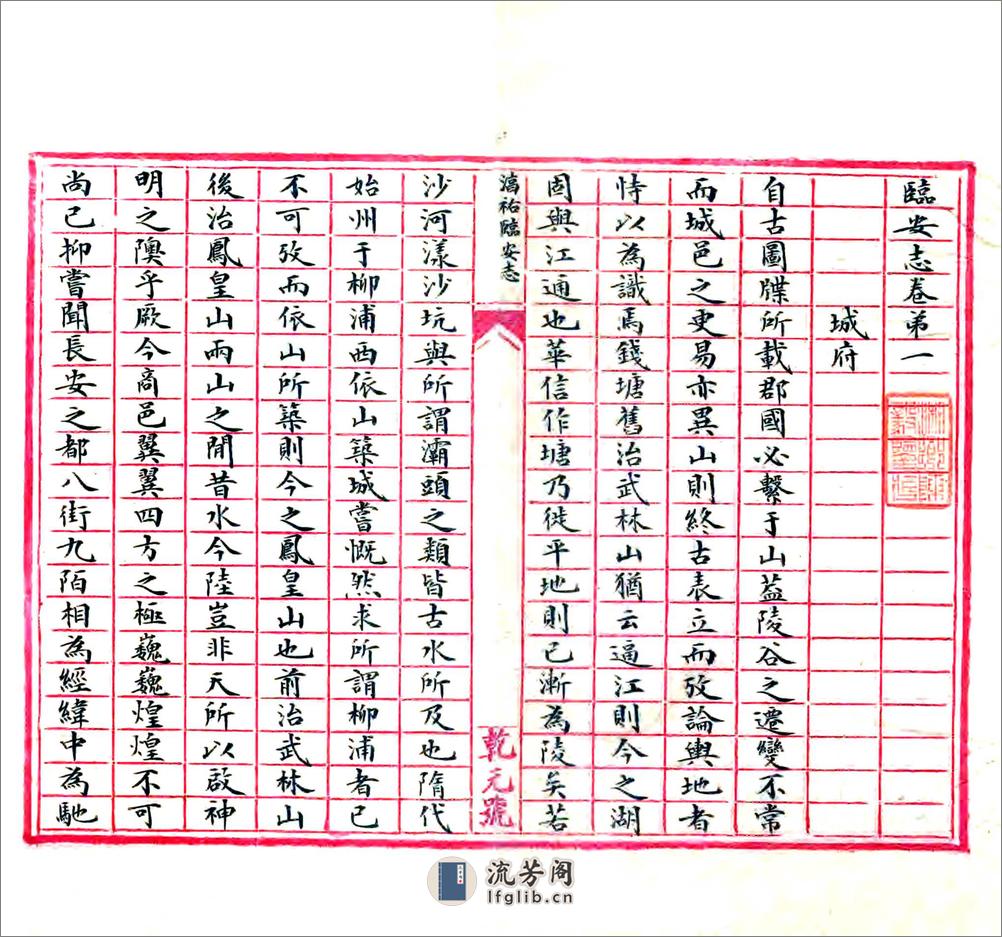 臨安志卷第一
城府
自古圖牒所載郡國必繫于山葢陵谷之遷變不常
而城邑之更易亦異山則終古表立而攷論輿地者
恃以為識焉錢塘舊治武林山猶云逼江則今之湖
固與江通也華信作塘乃徙平地則已漸為陵矣若
淳祐臨安志
乾元號
沙河漾沙坑與所謂灞頭之類皆古水所及也隋代
始州于柳浦西依山築城嘗慨然求所謂柳浦者已
不可攷而依山所築則今之鳳皇山也前治武林山
後治鳳皇山兩山之間昔水今陸豈非天所以啟神
明之隩乎厥今商邑翼翼四方之極巍巍煌煌不可
尚已抑嘗聞長安之都八街九陌相為經緯中為馳
流芳阁
lfglib.cn